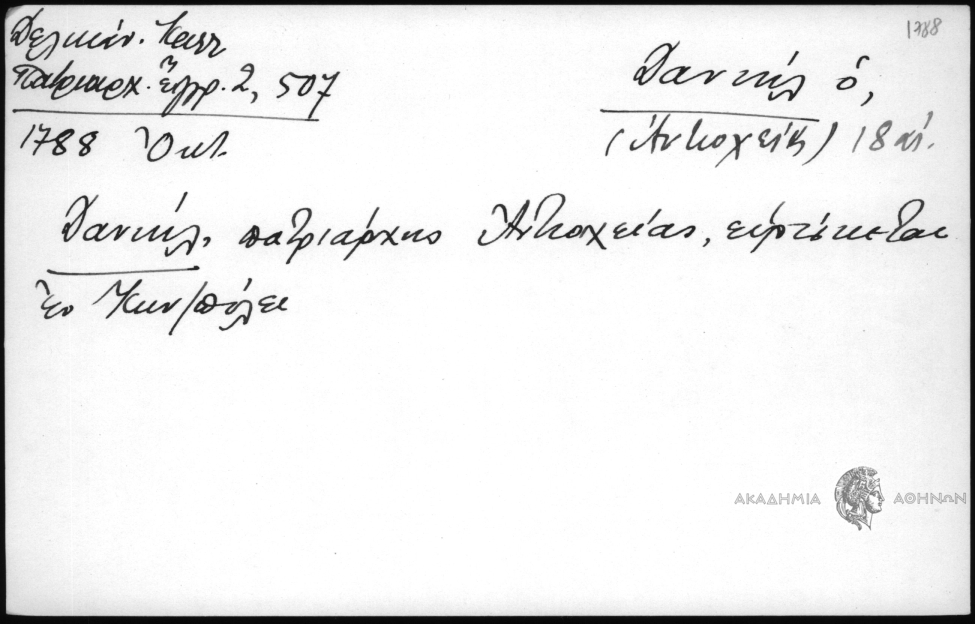 1788
Δελικάν. Κατ
Πατριαρχ. Ἔγγρ. 2, 507
1788 Ὀκτ.
Δανιήλ ὁ,
(Ἀντιοχείας) 18 αἰ.
Δανιήλ, πατριάρχης Ἀντιοχείας, εὑρίσκεται
ἐν Κων/πόλει
ΑΚΑΔΗΜΙΑ ΑΘΗΝΩΝ